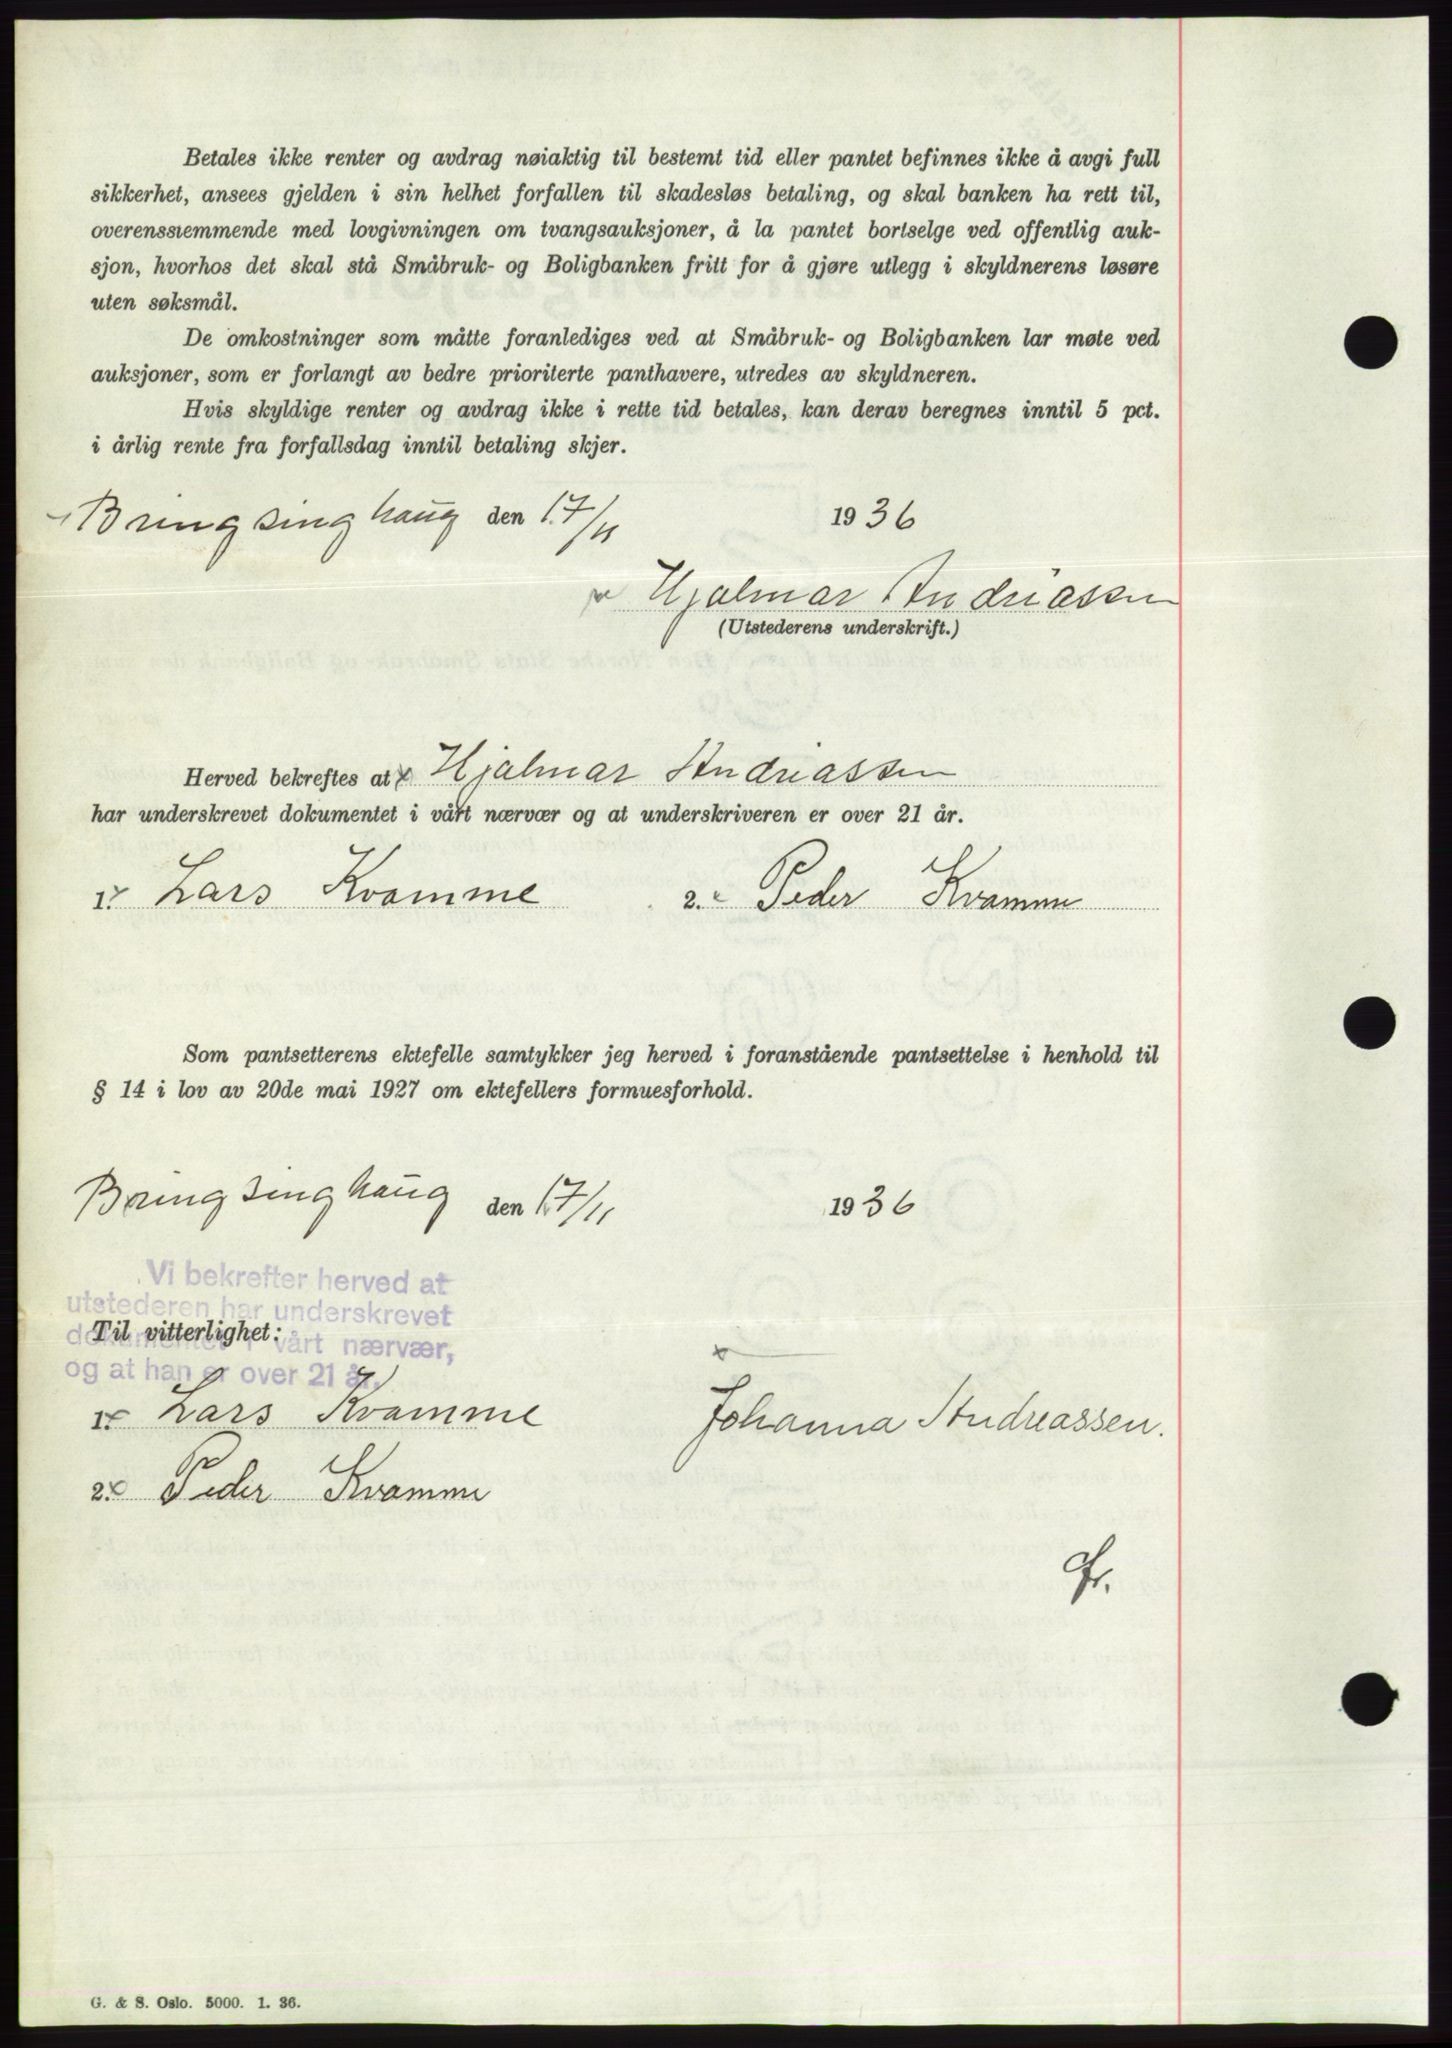 Betales ikke renter og avdrag nøiaktig til bestemt tid eller pantet befinnes ikke å avgi full
sikkerhet, ansees gjelden i sin helhet forfallen til skadesløs betaling, og skal banken ha rett til,
overensstemmende med lovgivningen om tvangsauksjoner, å la pantet bortselge ved offentlig auk-
sjon, hvorhos det skal stå Småbruk- og Boligbanken fritt for å gjøre utlegg i skyldnerens løsøre
uten søksmål.
De omkostninger som måtte foranlediges ved at Småbruk- og Boligbanken lar møte ved
auksjoner, som er forlangt av bedre prioriterte panthavere, utredes av skyldneren.
Hvis skyldige renter og avdrag ikke i rette tid betales, kan derav beregnes inntil 5 pct.
i årlig rente fra forfallsdag inntil betaling skjer.
Bringsinghaug den 17/11 1936
Hjalmar Andriassen
(Utstederens underskrift.)
Herved bekreftes at Hjalmar Andriassen
har underskrevet dokumentet i vårt nærvær og at underskriveren er over 21 år.
1. Lars Kvamme 2. Peder Kvamme
Som pantsetterens ektefelle samtykker jeg herved i foranstående pantsettelse i henhold til
§ 14 i lov av 20de mai 1927 om ektefellers formuesforhold.
Bringsinghaug den 17/11 1936
Vi bekrefter herved at
utstederen har underskrevet
Til vitterlighet:
dokumentet i vårt nærvær,
og at han er over 21 år.
1. Lars Kvamme Johanna Andreassen.
2. Peder Kvamme
G. & S. Oslo. 5000. 1. 36.